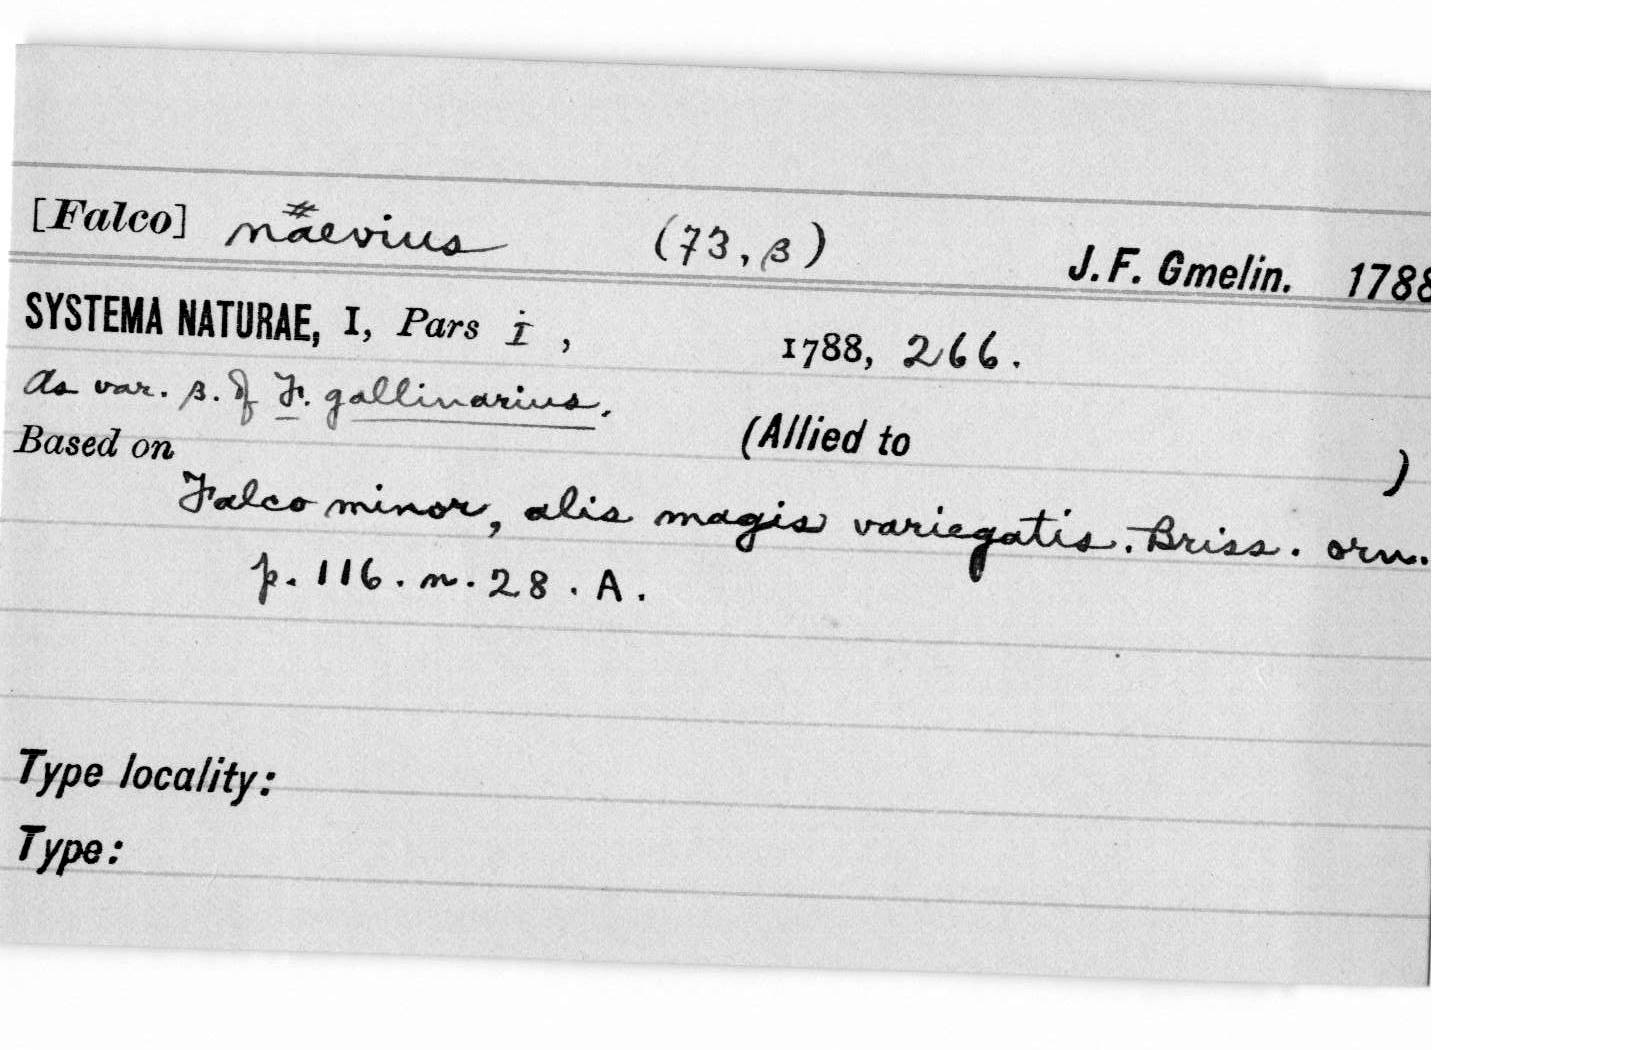 [Falco] naevius (73, β) J. F. Gmelin. 1788
SYSTEMA NATURAE, I, Pars i, 1788, 266.
As var. β. of F. gallinarius.
Based on (Allied to )
Falco minor, alis magis variegatis. Briss. orn.
p. 116. n. 28. A.
Type locality:
Type: